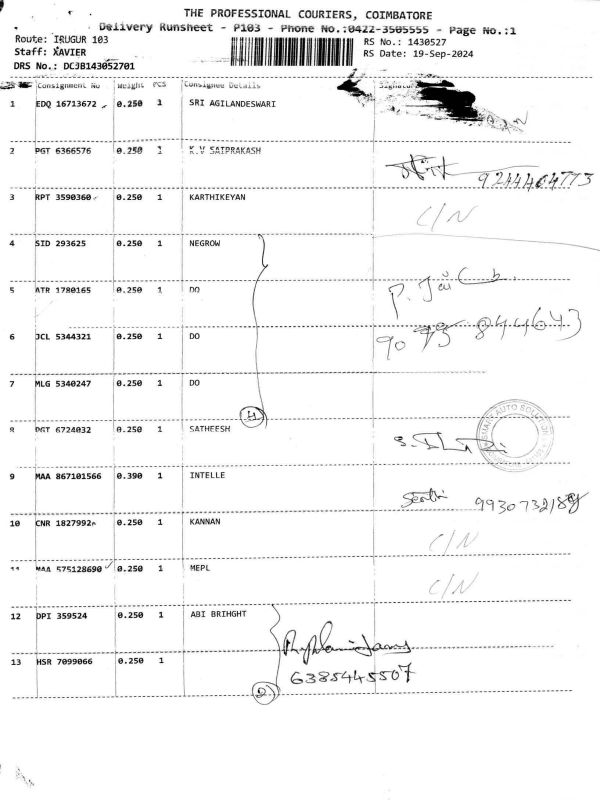 THE PROFESSIONAL COURIERS, COIMBATORE
Delivery Runsheet - P103 - Phone No.:0422-3505555 - Page No.:1
Route: IRUGUR 103
RS No.: 1430527
Staff: XAVIER
RS Date: 19-Sep-2024
DRS No.: DCJB143052701
Consignment No Weight PCS Consignee Details Signature
1 EDQ 16713672 0.250 1 SRI AGILANDESWARI
2 PGT 6366576 0.250 1 K.V SAIPRAKASH
9244464773
3 RPT 3590360 0.250 1 KARTHIKEYAN C/N
4 SID 293625 0.250 1 NEGROW
5 ATR 1780165 0.250 1 DO
P. Jai
6 JCL 5344321 0.250 1 DO
9075 844643
7 MLG 5340247 0.250 1 DO
4
8 PGT 6724032 0.250 1 SATHEESH
9 MAA 867101566 0.390 1 INTELLE
10 CNR 1827992 0.250 1 KANNAN C/N
11 MAA 575128690 0.250 1 MEPL C/N
12 DPI 359524 0.250 1 ABI BRIHGHT
13 HSR 7099066 0.250 1
6385445507
2